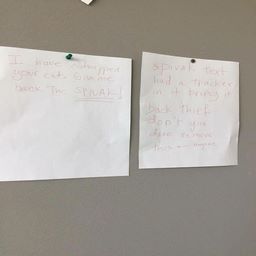 I have kidnapped
your cats. Give me
back The SPIVAK!
Spivak text
had a tracker
in it bring it
back thief
don't you
dare remove
this